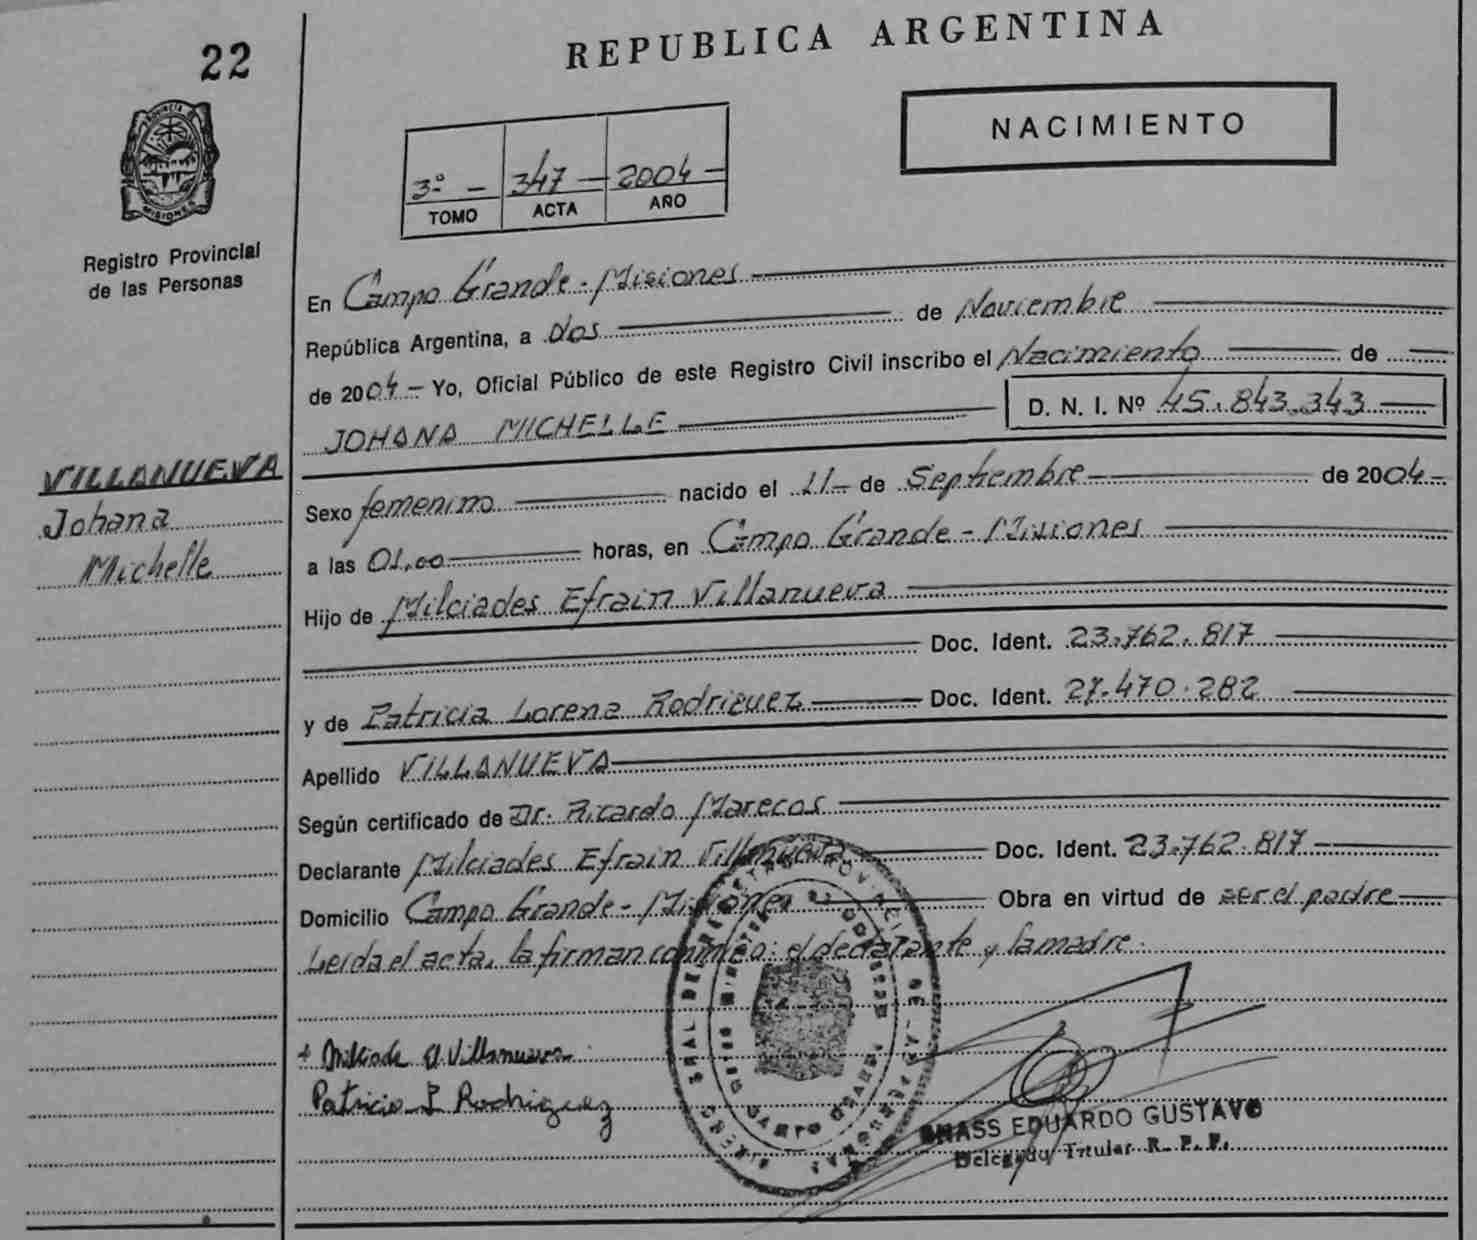 22
REPUBLICA ARGENTINA
PROVINCIA D
MISIONES
Registro Provincial
de las Personas
NACIMIENTO
3º - 347 - 2004 -
TOMO ACTA AÑO
En Campo Grande - Misiones
República Argentina, a dos de Noviembre
de 2004 - Yo, Oficial Público de este Registro Civil inscribo el Nacimiento de
JOHANA MICHELLE D. N. I. Nº 45.843.343
VILLANUEVA
Johana
Michelle
Sexo femenino nacido el 11 - de Septiembre de 2004 -
a las 01,00 horas, en Campo Grande - Misiones
Hijo de Milciades Efrain Villanueva
Doc. Ident. 23.762.817
y de Patricia Lorena Rodriguez Doc. Ident. 27.470.282
Apellido VILLANUEVA
Según certificado de Dr. Ricardo Marecos
Declarante Milciades Efrain Villanueva Doc. Ident. 23.762.817
Domicilio Campo Grande - Misiones Obra en virtud de ser el padre
Leida el acta, la firman conmigo: el declarante y la madre.
Villanueva
Rodriguez
CAMPO GRANDE
EDUARDO GUSTAVO
Delegado Titular R. P. P.